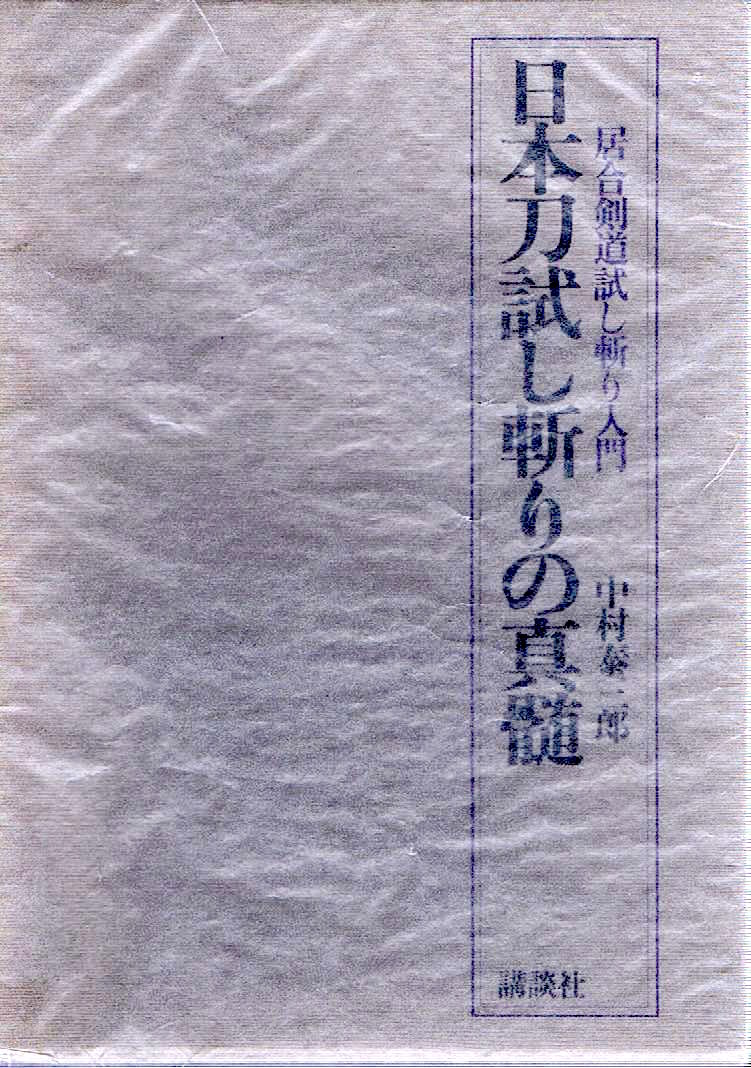 居合剣道試し斬り入門
中村泰三郎
日本刀試し斬りの真髄
講談社